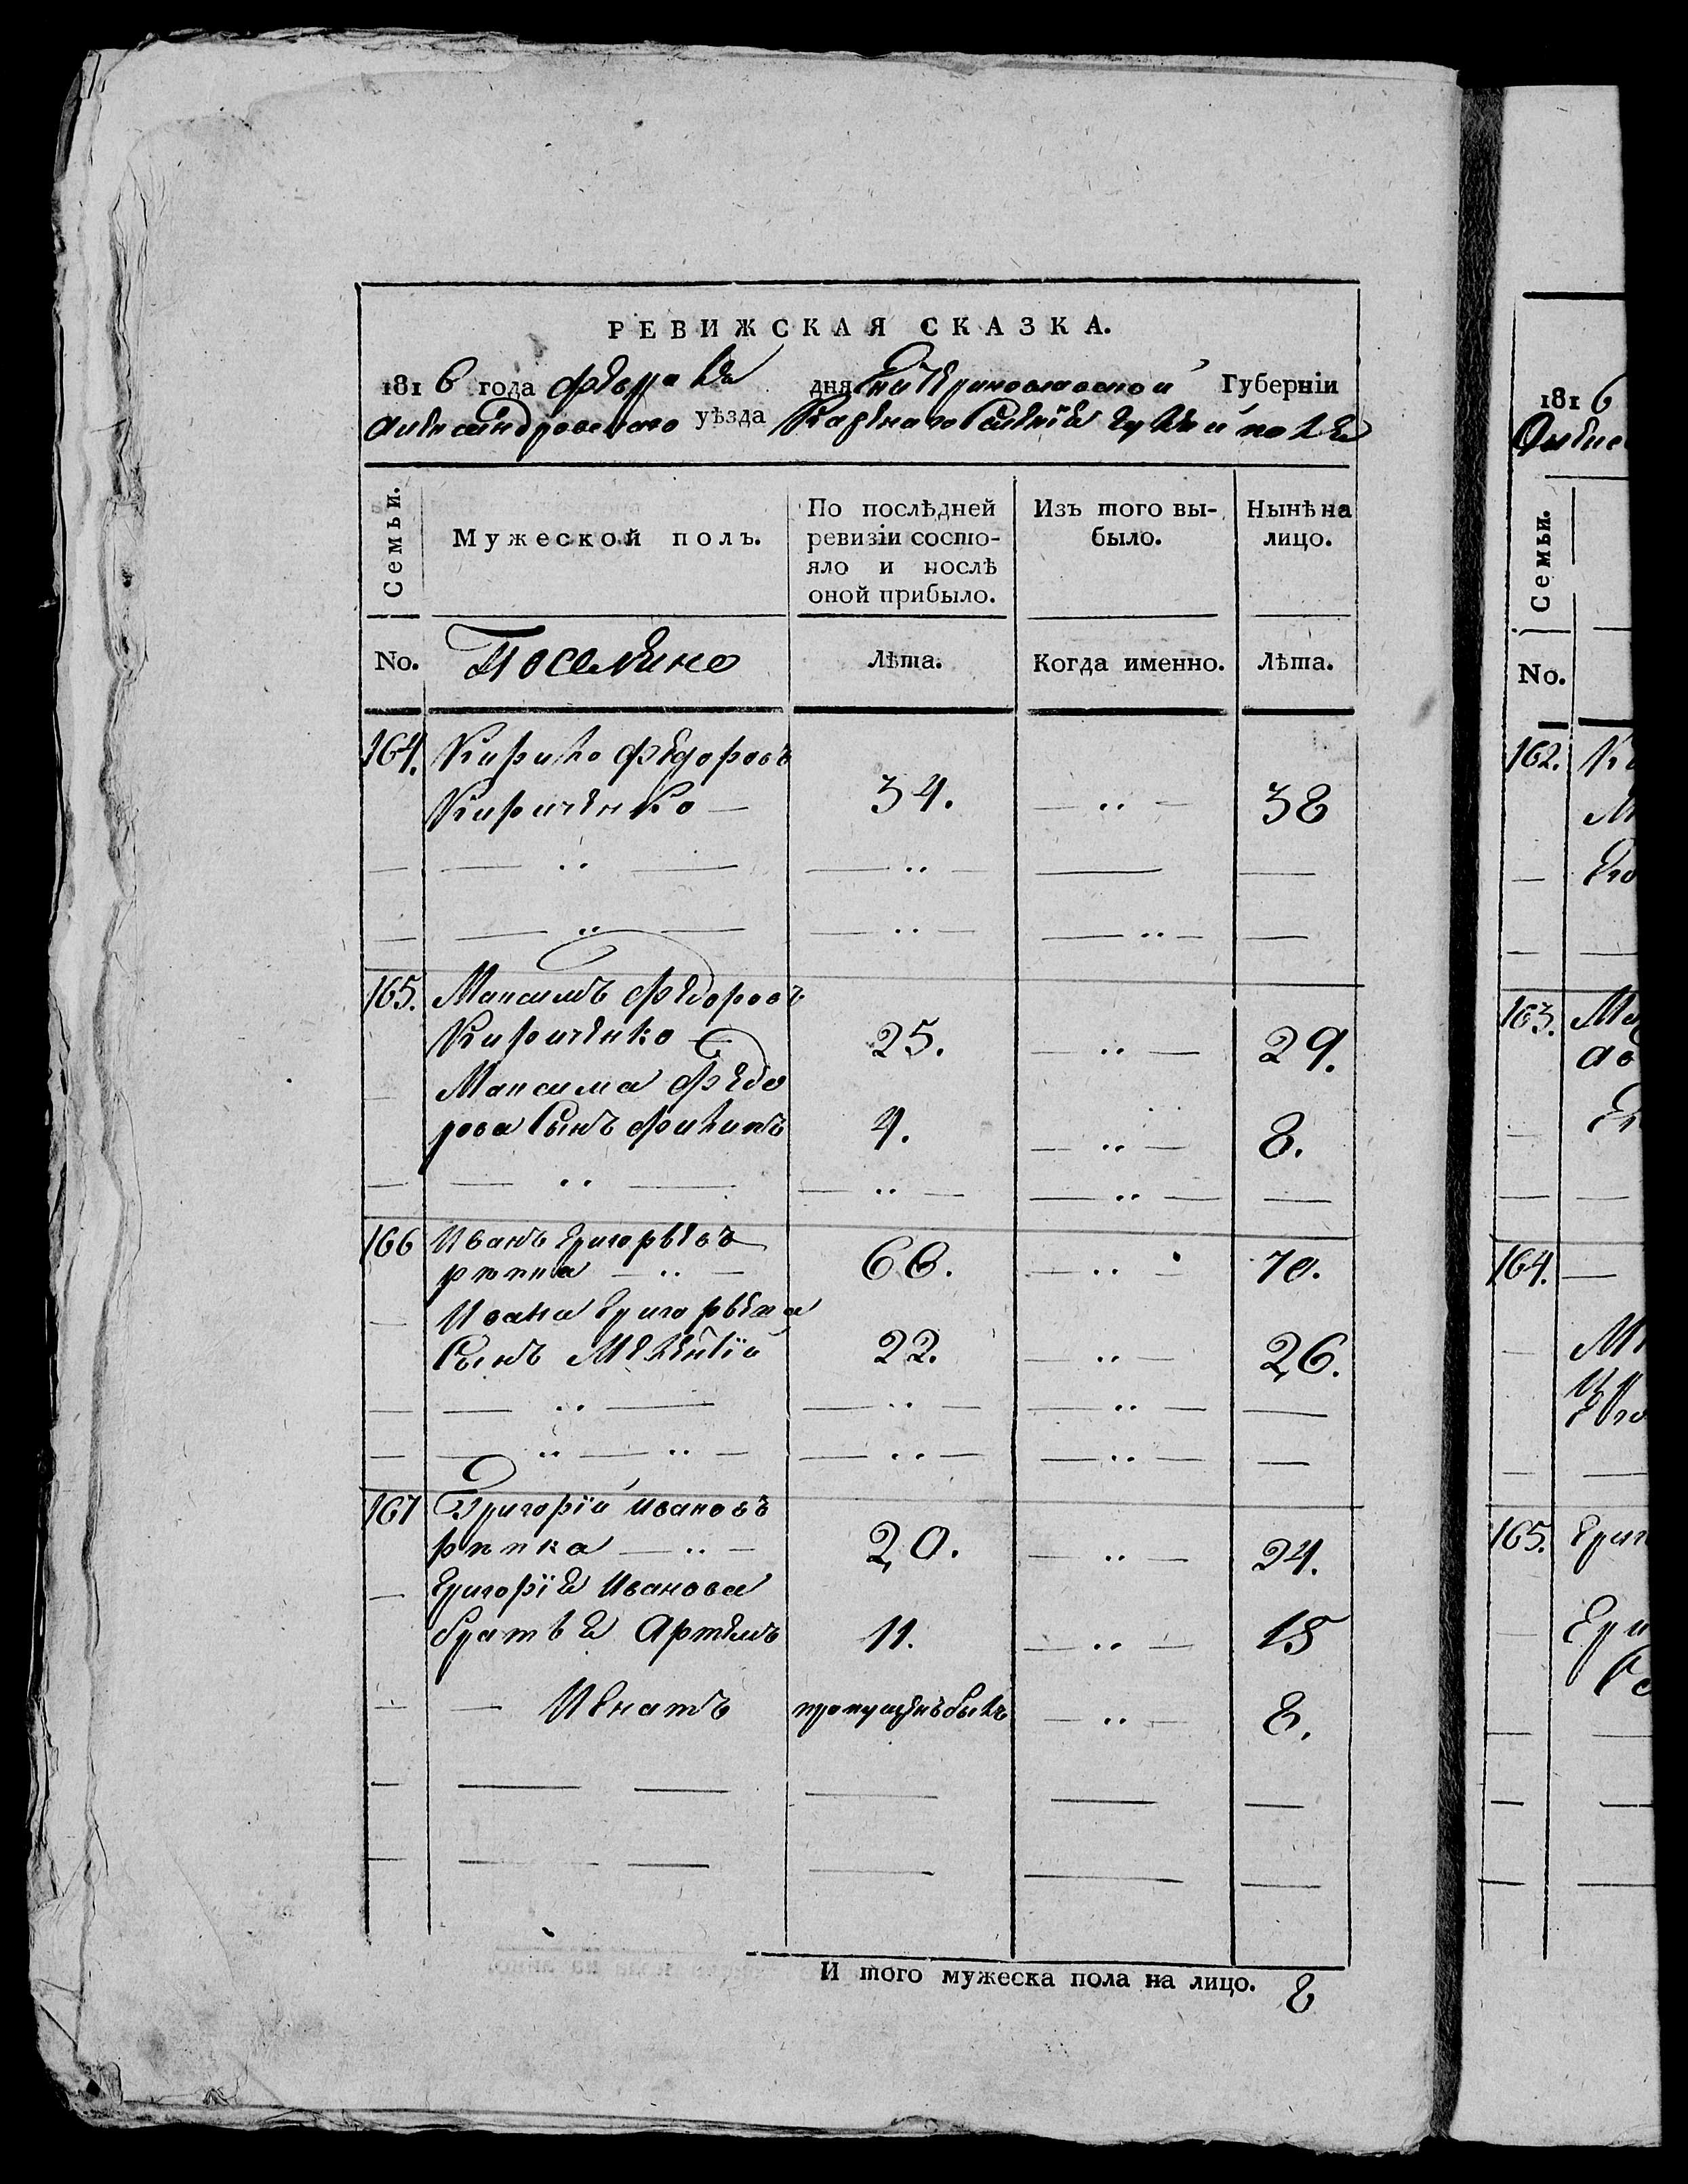 РЕВИЖСКАЯ СКАЗКА.
1816 года февраля дня Екатеринославской Губерніи
Александровского уѣзда Казеннаго Селенія Гуляйполя
Семьи.
Мужеской полъ.
По послѣдней ревизіи состояло и послѣ оной прибыло.
Изъ того выбыло.
Нынѣ на лицо.
No.
Поселяне
Лѣта.
Когда именно.
Лѣта.
164. Кирило Федоровъ
Кириченко 34. 38
165. Максимъ Федоровъ
Кириченко 25. 29.
Максима Федо
рова Сынъ Филипъ 4. 8.
166 Иванъ Григорьевъ
66. 70.
Ивана Григорьева
Сынъ Мелентій 22. 26.
167 Григорій Ивановъ
20. 24.
Григорія Иванова
братья Артемъ 11. 15
Игнатъ пропущенъ былъ 8.
И того мужеска пола на лицо. 8
1816
Семьи.
No.
162.
163.
164.
165.